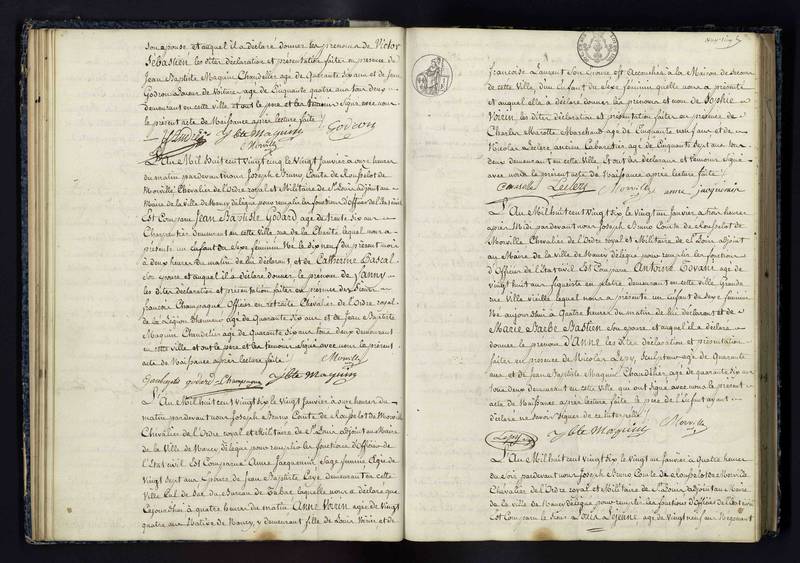 son épouse et auquel il a déclaré donner les prénoms de Victor
Sébastien les dites déclaration et présentation faites en présence de
Jean Baptiste Maquin Chandellier agé de Quarante six ans et de Jean
Godron Loueur de Voiture agé de Cinquante quatre ans tous deux
demeurant en cette ville et ont le père et les témoins signé avec nous
le présent acte de Naissance après lecture faite
Jbte Maquin Godron
Morville
L'An Mil Huit cent Vingt six le Vingt Janvier à onze heures
du matin pardevant nous Joseph Bruno Comte de Rousselot de
Morville, Chevalier de l'Ordre royal et Militaire de St Louis adjoint au
Maire de la Ville de Nancy délégué pour remplir les fonctions d'Officier de l'Etat civil
Est Comparu Jean Baptiste Godard agé de trente six ans
Charpentier demeurant en cette ville rue de la Charité, lequel nous a
présenté un Enfant du Sexe féminin Né le dix neuf du présent mois
à deux heures du matin de lui déclarant, et de Catherine Pascal
son épouse et auquel il a déclaré donner le prénom de Fanny
les dites déclaration et présentation faites en présence des Sieurs
françois Champagne Officier en retraite Chevalier de l'Ordre royal
de la Légion d'honneur agé de Quarante six ans et de Jean Baptiste
Maquin Chandelier agé de Quarante six ans tous deux demeurant
en cette ville et ont le père et les témoins signé avec nous le présent
acte de Naissance après lecture faite Morville
godard Champagne Jbte Maquin
L'An Mil huit cent Vingt six le Vingt Janvier à onze heures du
matin pardevant nous Joseph Bruno Comte de Rousselot de Morville
Chevalier de l'Ordre royal et Militaire de St Louis adjoint au Maire
de la Ville de Nancy délégué pour remplir les fonctions d'Officier de
l'Etat civil Est Comparue Anne Jacquemin Sage femme Agée de
Vingt sept ans Epouse de Jean Baptiste Payé demeurant en cette
Ville Cul de Sac du laquelle nous a déclaré que
Cejourd'hui à quatre heures du matin Anne Voirin agée de Vingt
quatre ans Native de Nancy y demeurant fille de Louis Voirin et de
françoise Laurent son Epouse est accouchée à la Maison de Secours
de cette Ville, d'un Enfant du Sexe féminin qu'elle nous a présenté
et auquel elle a déclaré donner les prénoms et nom de Sophie
Voirin, les dites déclaration et présentation faites en présence de
Charles Marotte Marchand agé de Cinquante neuf ans et de
Nicolas Leclerc ancien Cabaretier agé de Cinquante Sept ans tous
deux demeurant en cette Ville. Et ont les déclarante et témoins signé
avec nous le présent acte de Naissance après lecture faite
Leclerc Morville anne jacquemin
L'An Mil huit cent Vingt six le Vingt un Janvier à trois heures
après Midi pardevant nous Joseph Bruno Comte de Rousselot de
Morville Chevalier de l'Ordre royal et Militaire de St Louis adjoint
au Maire de la Ville de Nancy délégué pour remplir les fonctions
d'Officier de l'Etat civil Est Comparu Antoine Govani agé de
Vingt huit ans figuriste en plâtre demeurant en cette ville Grande
rue Ville vieille lequel nous a présenté un Enfant du Sexe féminin
Né aujourd'hui à Quatre heures du matin de lui déclarant et de
Marie Barbe Bastien son épouse et auquel il a déclaré
donner le prénom d'Anne les dites déclaration et présentation
faites en présence de Nicolas Lépy, Sculpteur agé de Quarante
ans et de Jean Baptiste Maquin Chandelier agé de quarante six ans
tous deux demeurant en cette Ville qui ont signé avec nous le présent
acte de Naissance après lecture faite le père de l'Enfant ayant
déclaré ne savoir signer de ce interpellé
Jbte Maquin Morville
L'An Mil huit cent Vingt six le Vingt un Janvier à Quatre heures
du soir pardevant nous Joseph Bruno Comte de Rousselot de Morville
Chevalier de l'Ordre royal et Militaire de St Louis adjoint au Maire
de la Ville de Nancy délégué pour remplir les fonctions d'Officier de l'Etat civil
Est Comparu le Sieur Louis Lejeune agé de Vingt neuf ans Négociant